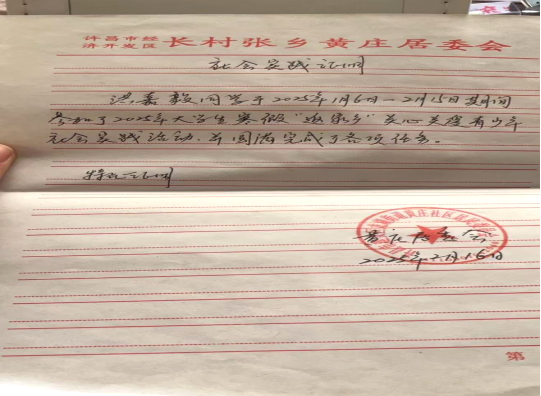 许昌市经
济开发区 长村张乡黄庄居委会
社会实践证明
洪嘉毅同学于2025年1月6日—2月15日期间
参加了2025年大学生寒假“返家乡”关心关爱青少年
社会实践活动,并圆满完成了各项任务。
特此证明
黄庄居委会
2025年2月16日
第